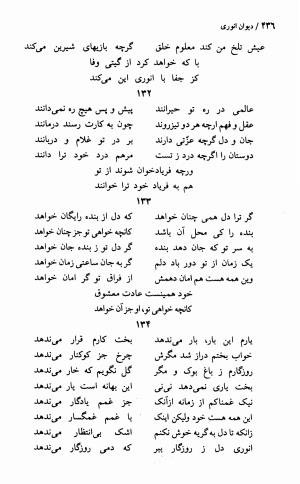 ۴۳۶ / دیوان انوری
عیش تلخ من کند معلوم خلق گرچه بازیهای شیرین می‌کند
با که خواهد کرد از گیتی وفا
کز جفا با انوری این می‌کند
۱۳۲
عالمی در ره تو حیرانند پیش و پس هیچ ره نمی‌دانند
عقل و فهم ارچه هر دو تیزروند چون به کارت رسند درمانند
جان و دل گرچه عزّتی دارند بر در تو غلام و دربانند
دوستان را اگرچه درد ز تست مرهم درد خود ترا دانند
ورچه فریادخوان شوند از تو
هم به فریاد خود ترا خوانند
۱۳۳
گر ترا دل همی چنان خواهد که دل از بنده رایگان خواهد
بنده را کی محل آن باشد کانچه خواهی تو جز چنان خواهد
به سر تو که جان دهد بنده گر دل تو ز بنده جان خواهد
یک زمان از تو دور باد دلم گر به جان ساعتی زمان خواهد
وین همه هست هم امان دهمش از فراق تو گر امان خواهد
خود همینست عادت معشوق
کانچه خواهی تو، او جز آن خواهد
۱۳۴
یارم این بار، بار می‌ندهد بخت کارم قرار می‌ندهد
خواب بختم دراز شد مگرش چرخ جز کوکنار می‌ندهد
روزگارم ز باغ بوک و مگر گل نگویم که خار می‌ندهد
بخت یاری نمی‌دهد نی‌نی این بهانه است یار می‌ندهد
نیک غمناکم از زمانه ازآنک جز غمم یادگار می‌ندهد
این همه هست خود ولیکن اینک با غمم غمگسار می‌ندهد
زانکه تا دل به گریه خوش نکنم اشک بی‌انتظار می‌ندهد
انوری دل ز روزگار ببر که دمی روزگار می‌ندهد